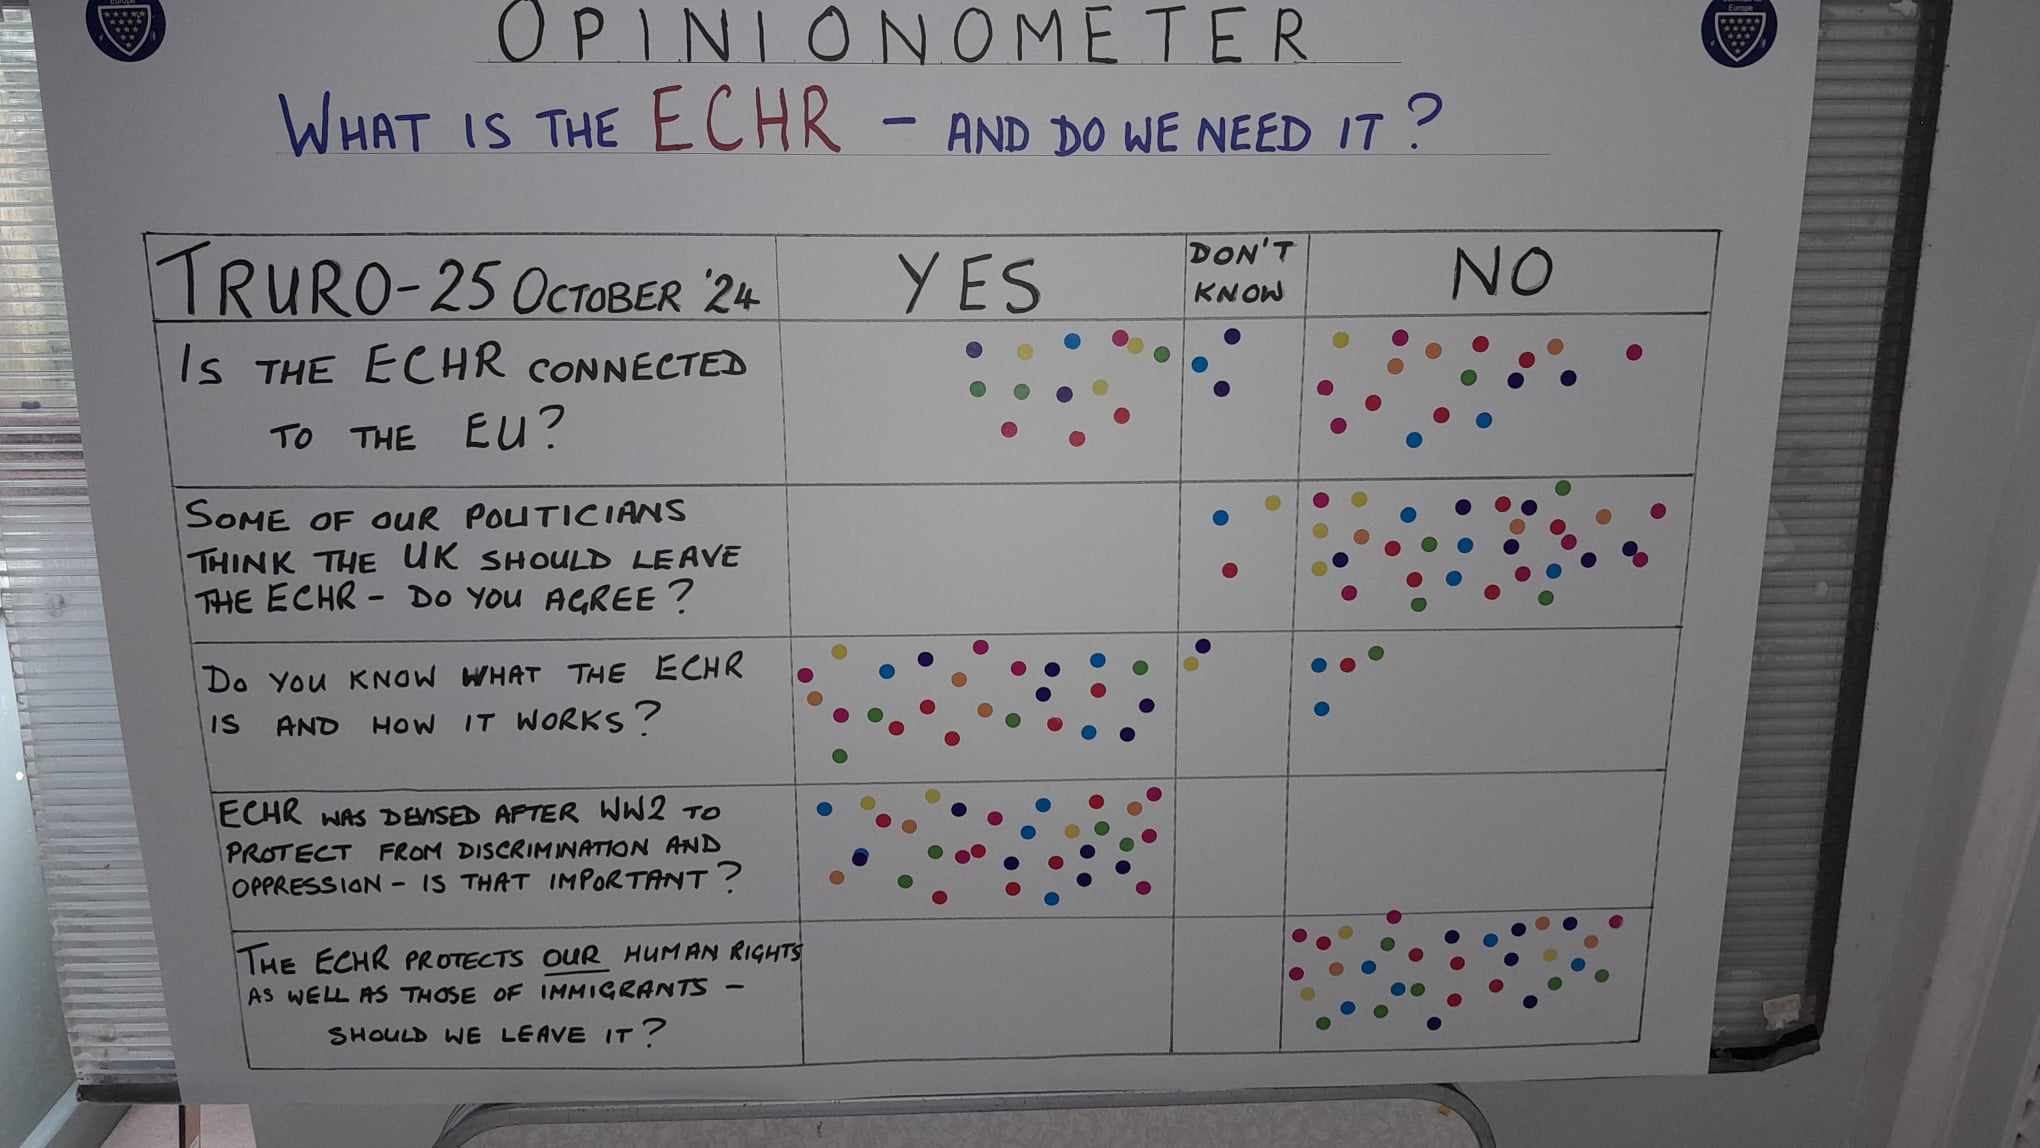 OPINIONOMETER
WHAT IS THE ECHR - AND DO WE NEED IT?
TRURO - 25 OCTOBER '24
YES
DON'T
KNOW
NO
IS THE ECHR CONNECTED
TO THE EU?
SOME OF OUR POLITICIANS
THINK THE UK SHOULD LEAVE
THE ECHR - DO YOU AGREE?
DO YOU KNOW WHAT THE ECHR
IS AND HOW IT WORKS?
ECHR WAS DEVISED AFTER WW2 TO
PROTECT FROM DISCRIMINATION AND
OPPRESSION - IS THAT IMPORTANT?
THE ECHR PROTECTS OUR HUMAN RIGHTS
AS WELL AS THOSE OF IMMIGRANTS -
SHOULD WE LEAVE IT?
Europe
Europe